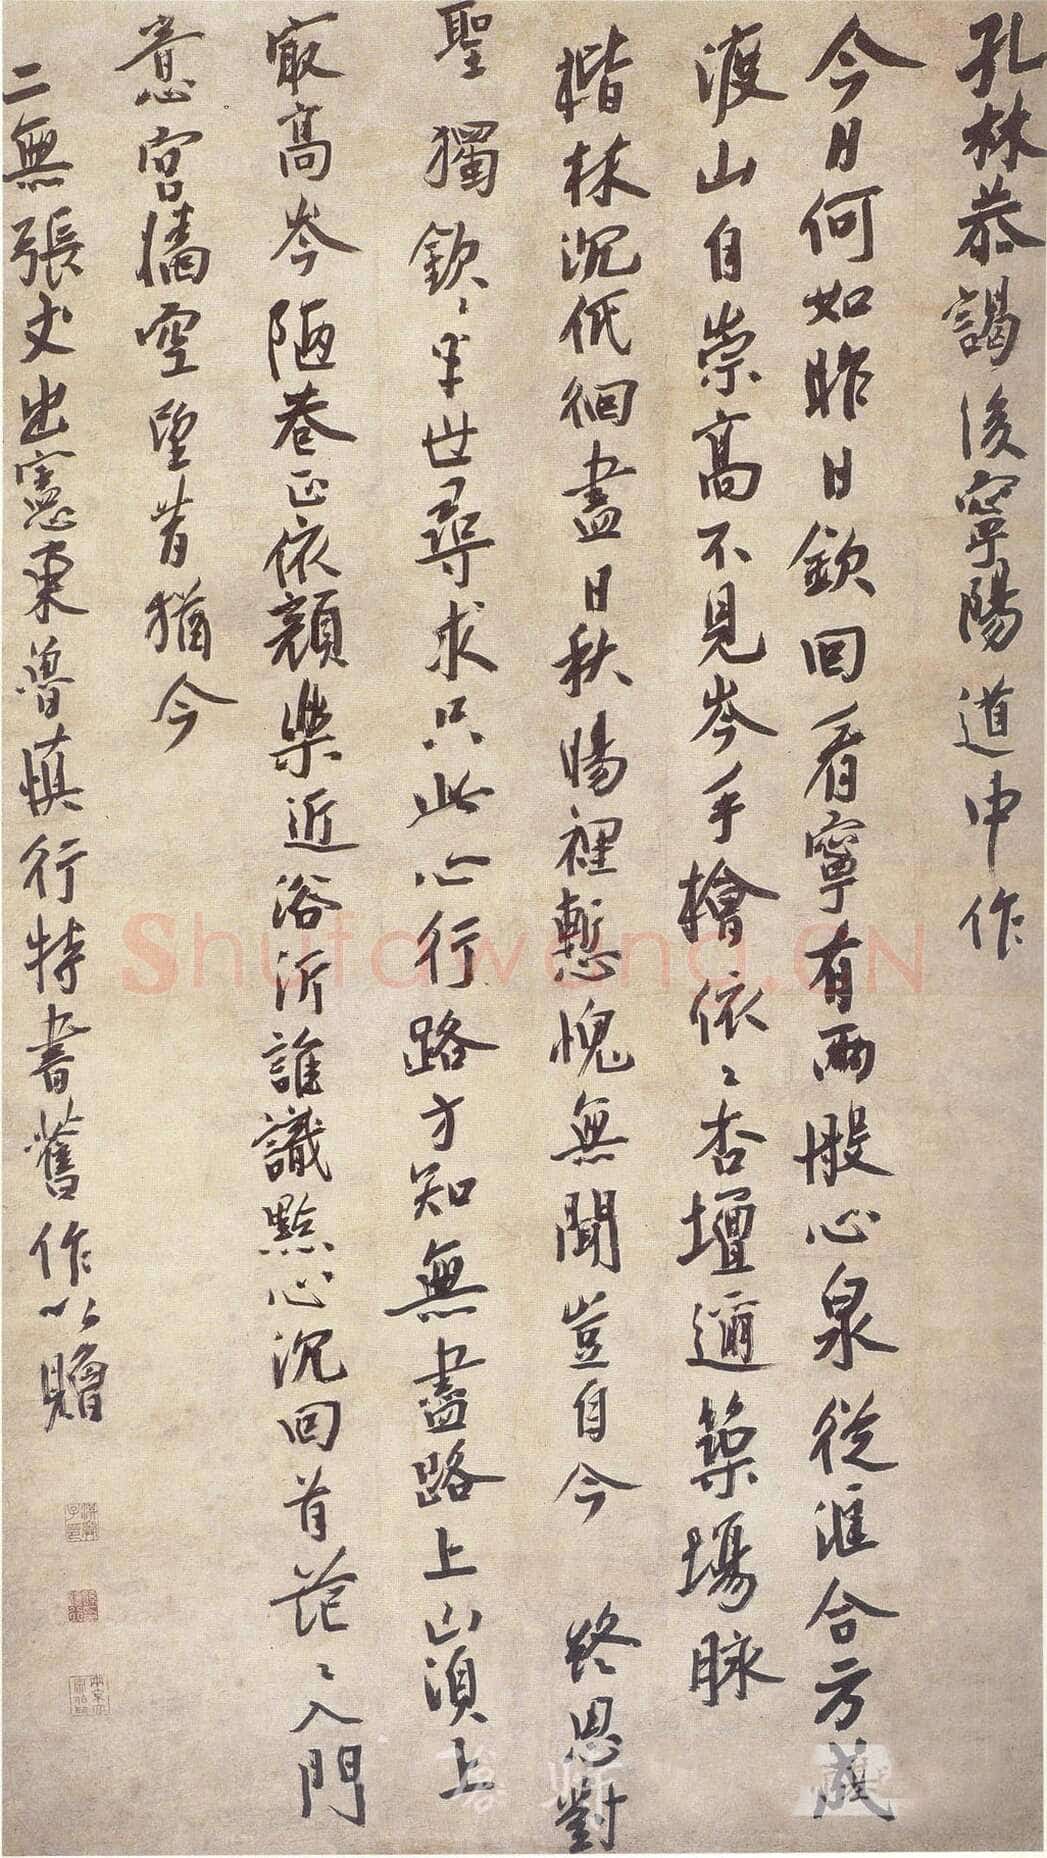 孔林恭謁後寧陽道中作
今日何如昨日欽回看寧有兩般心泉從滙合方成
渡山自崇高不見岑手檜依〻杏壇邇築場脉
楷林沉低徊盡日秋陽裡慙愧無聞豈自今 終思對
聖獨欽〻半世尋求只此心行路方知無盡路上山須上
最高岑陋巷正依顏樂近浴沂誰識點心沉回首茫〻入門
意宮墻空望昔猶今
二無張丈出憲東魯慎行特書舊作以贈
Shufawang.CN